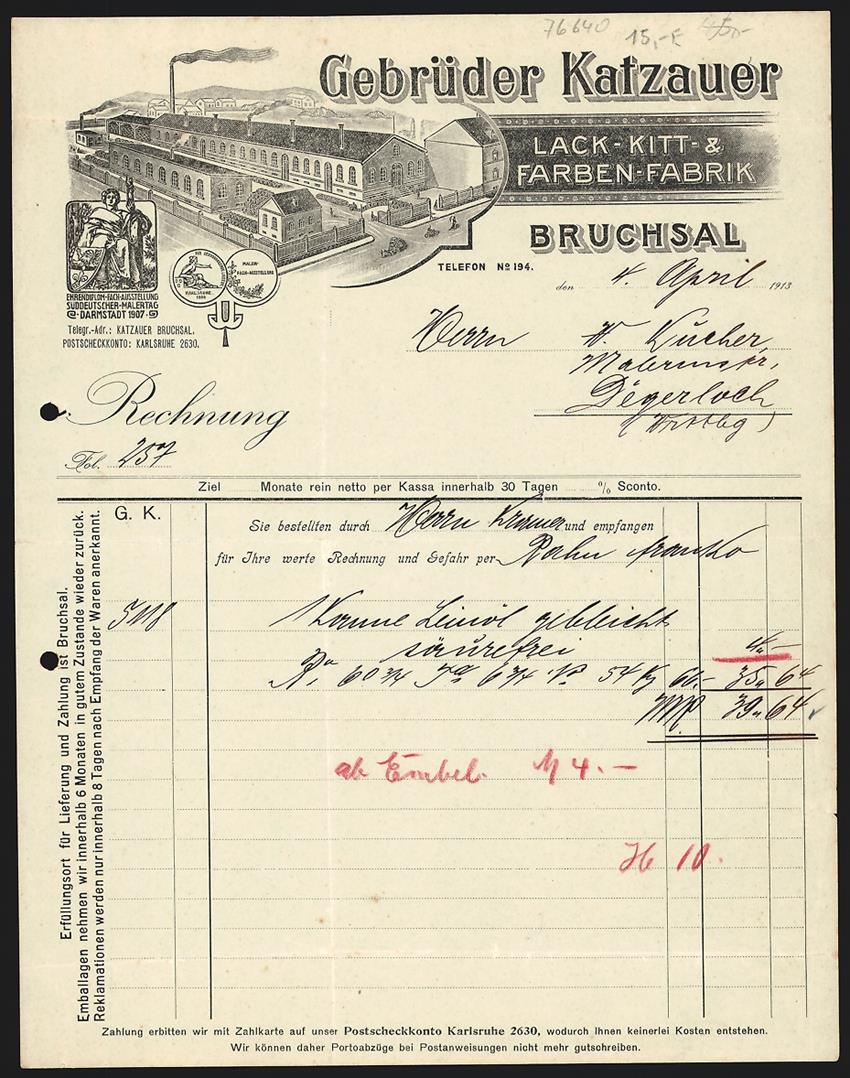 76640 15,-E
Gebrüder Katzauer
LACK-KITT-&
FARBEN-FABRIK
BRUCHSAL
TELEFON No 194.
den 4. April 1913
EHRENDIPLOM-FACH-AUSSTELLUNG
SÜDDEUTSCHER-MALERTAG
DARMSTADT 1907
KARLSRUHE
MALER-
FACH-AUSSTELLUNG
Telegr.-Adr.: KATZAUER BRUCHSAL.
POSTSCHECKKONTO: KARLSRUHE 2630.
Herrn W. Kucher,
Malermstr,
Degerloch
Rechnung
Fol. 257
Ziel Monate rein netto per Kassa innerhalb 30 Tagen % Sconto.
G. K.
Sie bestellten durch Herrn Kramer und empfangen
für Ihre werte Rechnung und Gefahr per Bahn franko
5118 1 Kanne Leinöl gebleicht
säurefrei 4.-
60 3/4 6 3/4 54 Kg 66.- 35 64
M 39 64
ab Embel. M 4.-
10.
Erfüllungsort für Lieferung und Zahlung ist Bruchsal.
Emballagen nehmen wir innerhalb 6 Monaten in gutem Zustande wieder zurück.
Reklamationen werden nur innerhalb 8 Tagen nach Empfang der Waren anerkannt.
Zahlung erbitten wir mit Zahlkarte auf unser Postscheckkonto Karlsruhe 2630, wodurch Ihnen keinerlei Kosten entstehen.
Wir können daher Portoabzüge bei Postanweisungen nicht mehr gutschreiben.